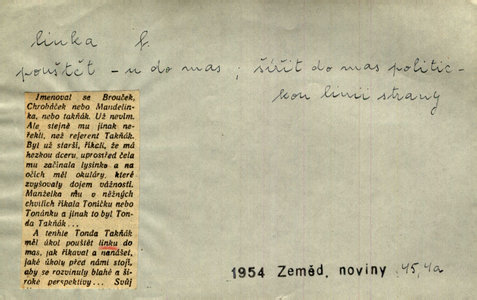 linka f.
pouštět -u do mas; šířit do mas politic-
kou linii strany
Jmenoval se Brouček,
Chrobáček nebo Mandelin-
ka, nebo takňák. Už nevím.
Ale stejně mu jinak ne-
řekli, než referent Takňák.
Byl už starší, říkali, že má
hezkou dceru, uprostřed čela
mu začínala lysinka a na
očích měl okuláry, které
zvyšovaly dojem vážnosti.
Manželka mu v něžných
chvílích říkala Toníčku nebo
Tonánku a jinak to byl Ton-
da Takňák...
A tenhle Tonda Takňák
měl úkol pouštět linku do
mas, jak říkával a nanášel,
jaké úkoly před námi stojí,
aby se rozvinuly blahé a ši-
roké perspektivy... Svůj
1954 Zeměd. noviny 45, 4a